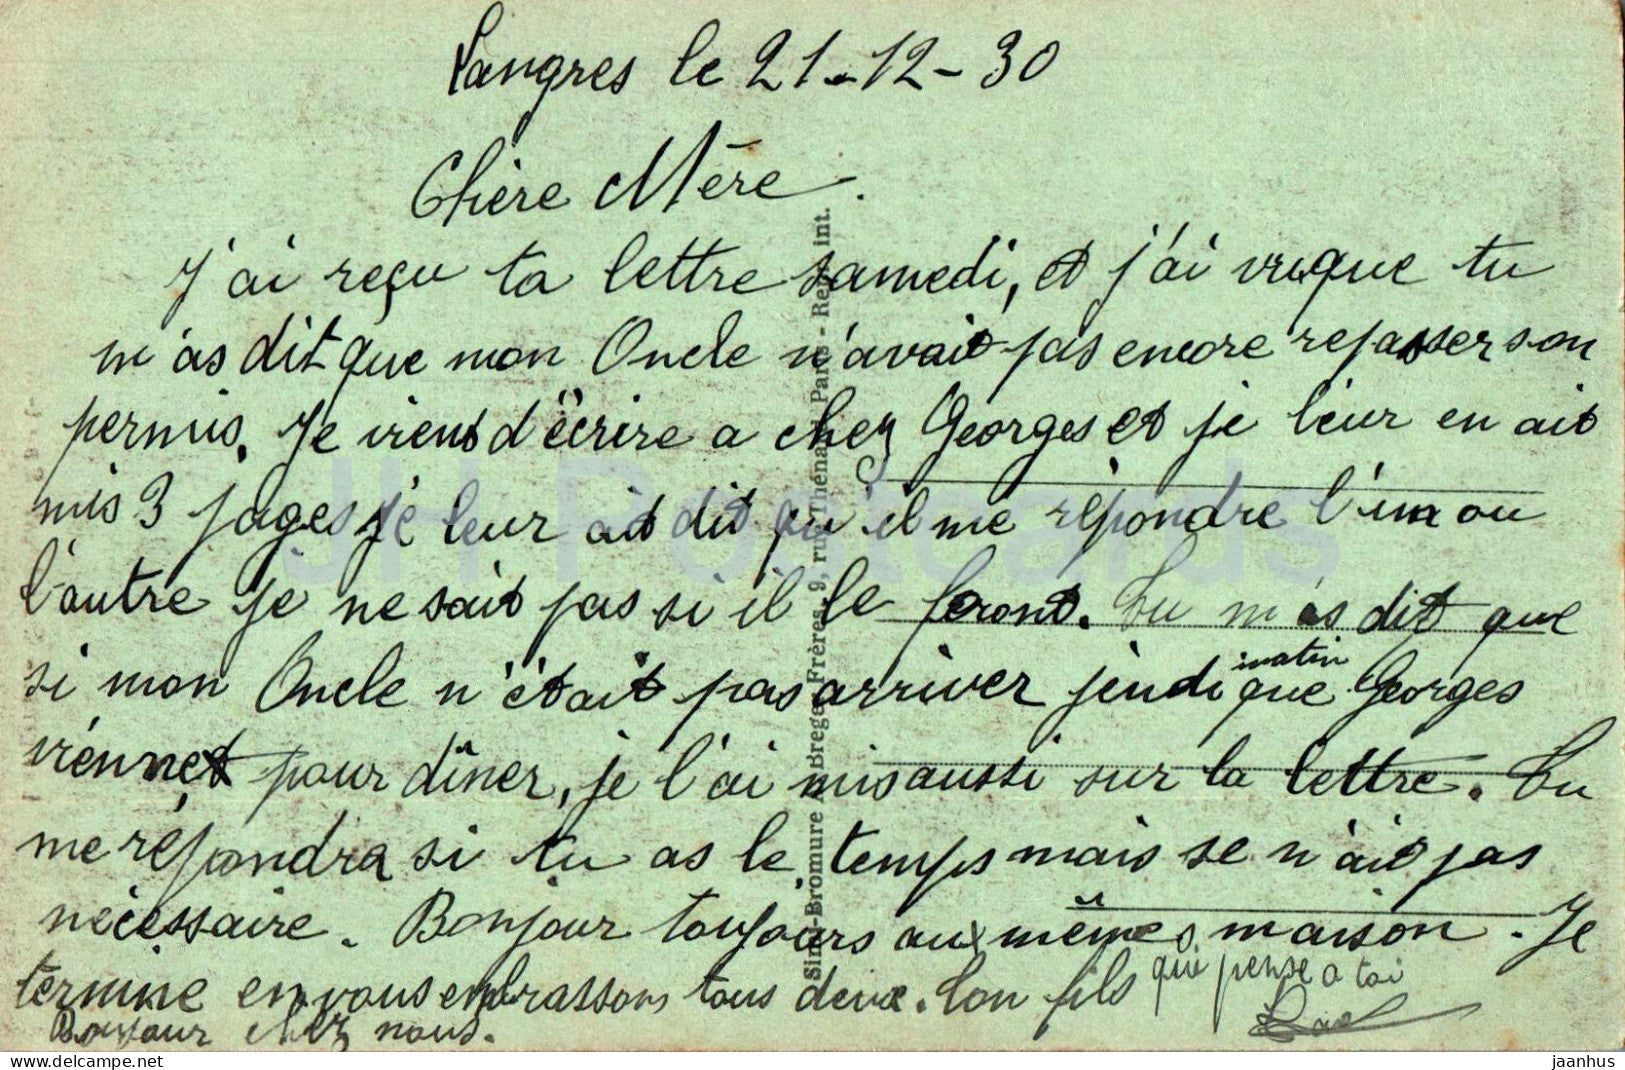 Langres le 21-12-30
Chère Mère.
J'ai reçu ta lettre samedi, et j'ai vu que tu
m'as dit que mon Oncle n'avait pas encore repasser son
permis. Je viens d'écrire a chez Georges et je leur en ait
mis 3 pages je leur ait dit qu'il me répondre l'un ou
l'autre je ne sait pas si il le feront. Tu m'as dit que
si mon Oncle n'était pas arriver jeudi matin que Georges
viennet pour dîner, je l'ai mis aussi sur la lettre. Tu
me répondra si tu as le temps mais se n'ait pas
nécessaire. Bonjour toujours aux mêmes maison. Je
termine en vous embrassons tous deux. Ton fils qui pense a toi
Bonjour chez nous.
Simi-Bromure A. Breger Frères, 9, rue Thénard, Paris - Rep. int.
JH Postcards
www.delcampe.net
jaanhus